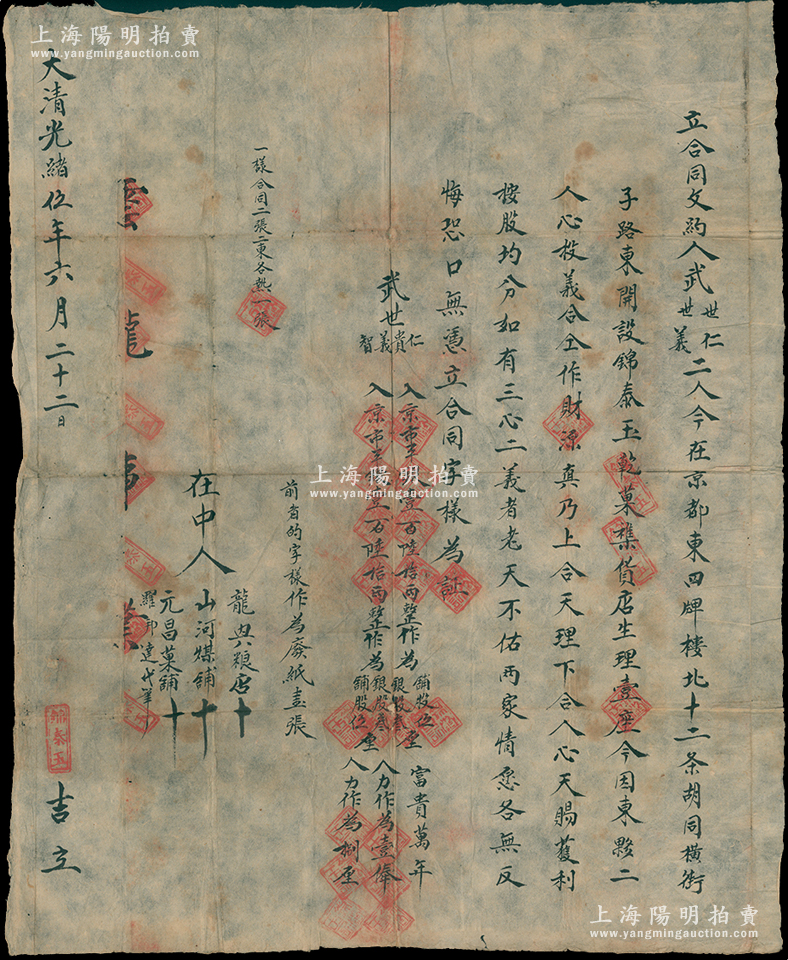 立合同文約人武世仁世義二人今在京都東四牌樓北十二条胡同橫街
子路東開設錦泰玉乾菓襍貨店生理壹座今因東夥二
人心投義合仝作財源真乃上合天理下合人心天賜獲利
按股均分如有三心二義者老天不佑両家情愿各無反
悔恐口無憑立合同字樣為証
武世仁貴義智
入京市平 壹百陸拾両整作為銀股叁厘 舖股伍厘 富貴萬年
入京市平 百陸拾両整作為銀股叁厘 舖股伍厘 人力作為壹俸
人力作為捌厘
前者的字樣作為廢紙壹張
在中人
龍興粮店十
山河煤舖十
元昌菓舖十
邦達代筆
一樣合同二張二東各執一張
大清光緒伍年六月二十二日
錦泰玉
吉立
上海陽明拍賣
www.yangmingauction.com
上海陽明拍賣
www.yangmingauction.com
上海陽明拍賣
www.yangmingauction.com